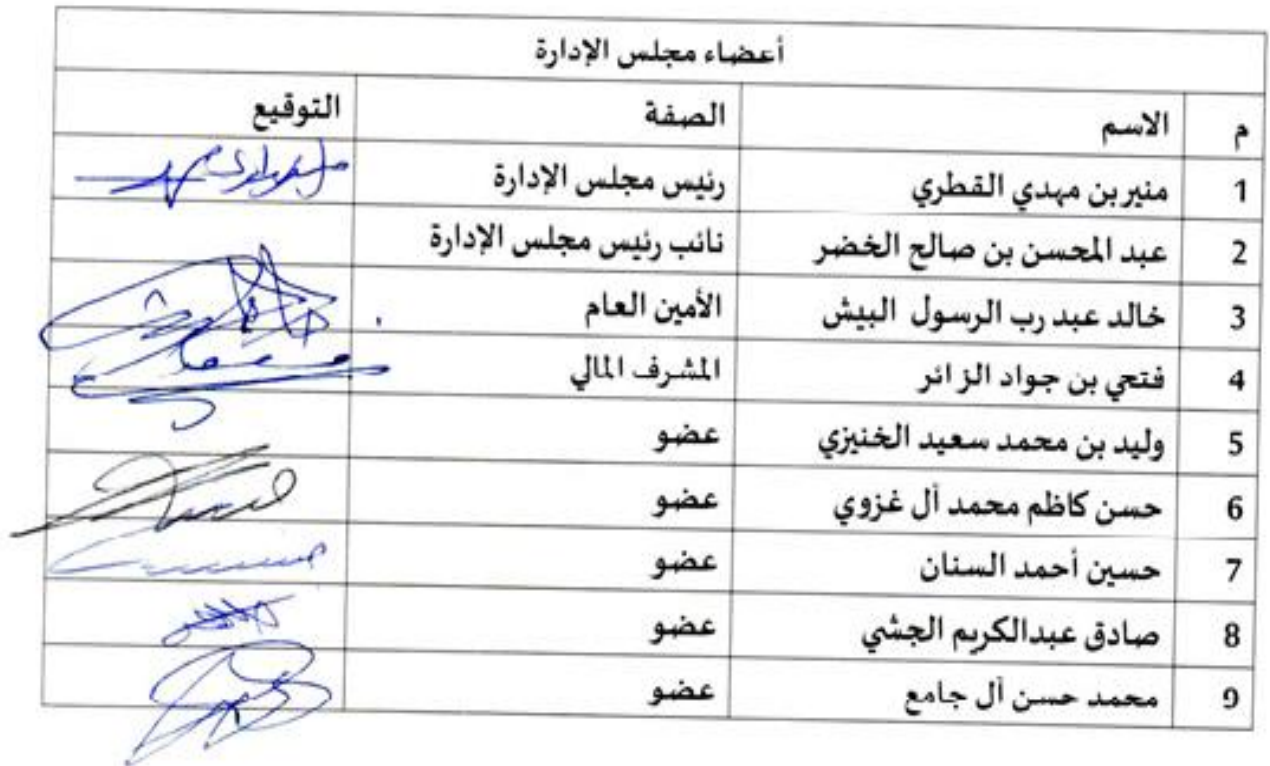 أعضاء مجلس الإدارة
م الاسم الصفة التوقيع
1 منير بن مهدي القطري رئيس مجلس الإدارة
2 عبد المحسن بن صالح الخضر نائب رئيس مجلس الإدارة
3 خالد عبد رب الرسول البيش الأمين العام
4 فتحي بن جواد الزائر المشرف المالي
5 وليد بن محمد سعيد الخنيزي عضو
6 حسن كاظم محمد آل غزوي عضو
7 حسين أحمد السنان عضو
8 صادق عبدالكريم الجشي عضو
9 محمد حسن آل جامع عضو